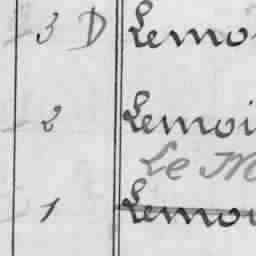 3 D Lemoi
2 Lemoi
Le M
1 Lemoi